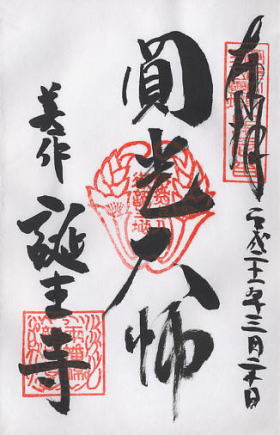 奉拝
平成二十一年三月二十日
圓光大師
美作
誕生寺